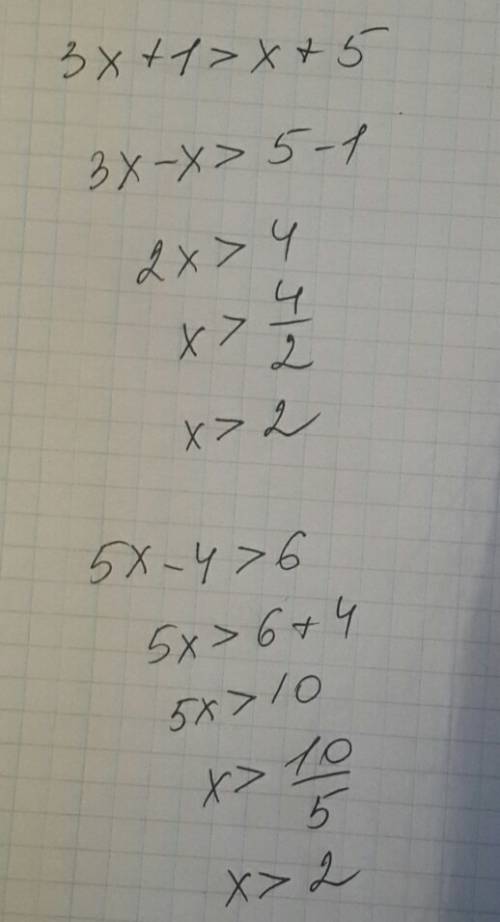 3x+1>x+5
3x-x>5-1
2x>4
x>4/2
x>2
5x-4>6
5x>6+4
5x>10
x>10/5
x>2